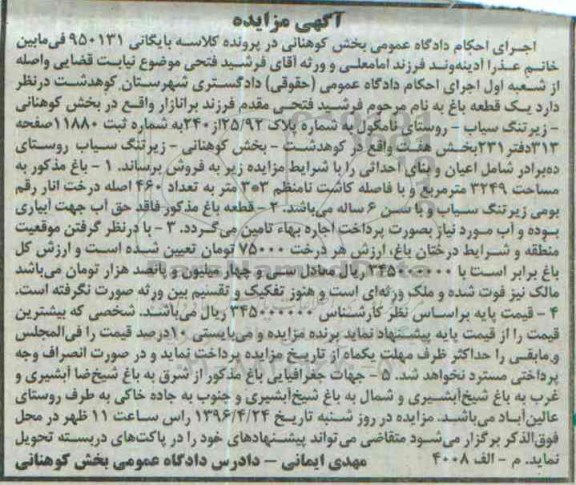 آگهی مزایده
اجرای احکام دادگاه عمومی بخش کوهنانی در پرونده کلاسه بایگانی ۹۵۰۱۳۱ فی‌مابین
خانم عذرا آدینه‌وند فرزند امامعلی و ورثه آقای فرشید فتحی موضوع نیابت قضایی واصله
از شعبه اول اجرای احکام دادگاه عمومی (حقوقی) دادگستری شهرستان کوهدشت درنظر
دارد یک قطعه باغ به نام مرحوم فرشید فتحی مقدم فرزند برانازار واقع در بخش کوهنانی
- زیرتنگ سیاب - روستای نامکول به شماره پلاک ۲۵/۹۲از ۲۴۰به شماره ثبت ۱۱۸۸۰صفحه
۳۱۳دفتر ۲۳۱بخش هفت واقع در کوهدشت - بخش کوهنانی - زیرتنگ سیاب روستای
ده‌برادر شامل اعیان و بنای احداثی را با شرایط مزایده زیر به فروش برساند. ۱ - باغ مذکور به
مساحت ۳۲۴۹ مترمربع و با فاصله کاشت نامنظم ۳×۳ متر به تعداد ۴۶۰ اصله درخت انار رقم
بومی زیرتنگ سیاب و با سن ۶ ساله می‌باشد. ۲ - قطعه باغ مذکور فاقد حق آب جهت آبیاری
بوده و آب مورد نیاز بصورت پرداخت اجاره بهاء تامین می‌گردد. ۳ - با درنظر گرفتن موقعیت
منطقه و شرایط درختان باغ، ارزش هر درخت ۷۵۰۰۰ تومان تعیین شده است و ارزش کل
باغ برابر است با ۳۴۵۰۰۰۰۰۰ ریال معادل سی و چهار میلیون و پانصد هزار تومان می‌باشد
مالک نیز فوت شده و ملک ورثه‌ای است و هنوز تفکیک و تقسیم بین ورثه صورت نگرفته است.
۴ - قیمت پایه براساس نظر کارشناس ۳۴۵۰۰۰۰۰۰ ریال می‌باشد. شخصی که بیشترین
قیمت را از قیمت پایه پیشنهاد نماید برنده مزایده و می‌بایستی ۱۰درصد قیمت را فی‌المجلس
و مابقی را حداکثر ظرف مهلت یکماه از تاریخ مزایده پرداخت نماید و در صورت انصراف وجه
پرداختی مسترد نخواهد شد. ۵ - جهات جغرافیایی باغ مذکور از شرق به باغ شیخ‌ضا آبشیری و
غرب به باغ شیخ‌آبشیری و شمال به باغ شیخ‌آبشیری و جنوب به جاده خاکی به طرف روستای
عالین‌آباد می‌باشد. مزایده در روز شنبه تاریخ ۱۳۹۶/۴/۲۴ راس ساعت ۱۱ ظهر در محل
فوق‌الذکر برگزار می‌شود متقاضی می‌تواند پیشنهادهای خود را در پاکت‌های دربسته تحویل
نماید. م - الف ۴۰۰۸ مهدی ایمانی – دادرس دادگاه عمومی بخش کوهنانی